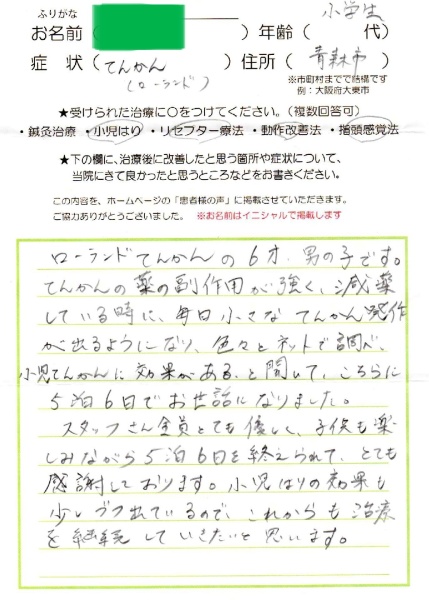 ふりがな
お名前（　　　　）年齢（ 小学生 代）
症 状（てんかん（ローランド））住所（青森市）
※市町村までで結構です
例：大阪府大東市
★受けられた治療に〇をつけてください。（複数回答可）
・鍼灸治療 ・小児はり ・リセプター療法 ・動作改善法 ・指頭感覚法
★下の欄に、治療後に改善したと思う箇所や症状について、
当院にきて良かったと思うところなどをお書きください。
この内容を、ホームページの「患者様の声」に掲載させていただきます。
ご協力ありがとうございました。 ※お名前はイニシャルで掲載します
ローランドてんかんの6才、男の子です。
てんかんの薬の副作用が強く、減薬
している時に、毎日小さな てんかん発作
が出るようになり、色々とネットで調べ、
小児てんかんに効果がある、と聞いて、こちらに
5泊6日でお世話になりました。
スタッフさん全員とても優しく、子供も楽
しみながら5泊6日を終えられて、とても
感謝しております。小児はりの効果も
少しづつ出ているので、これからも治療
を継続していきたいと思います。